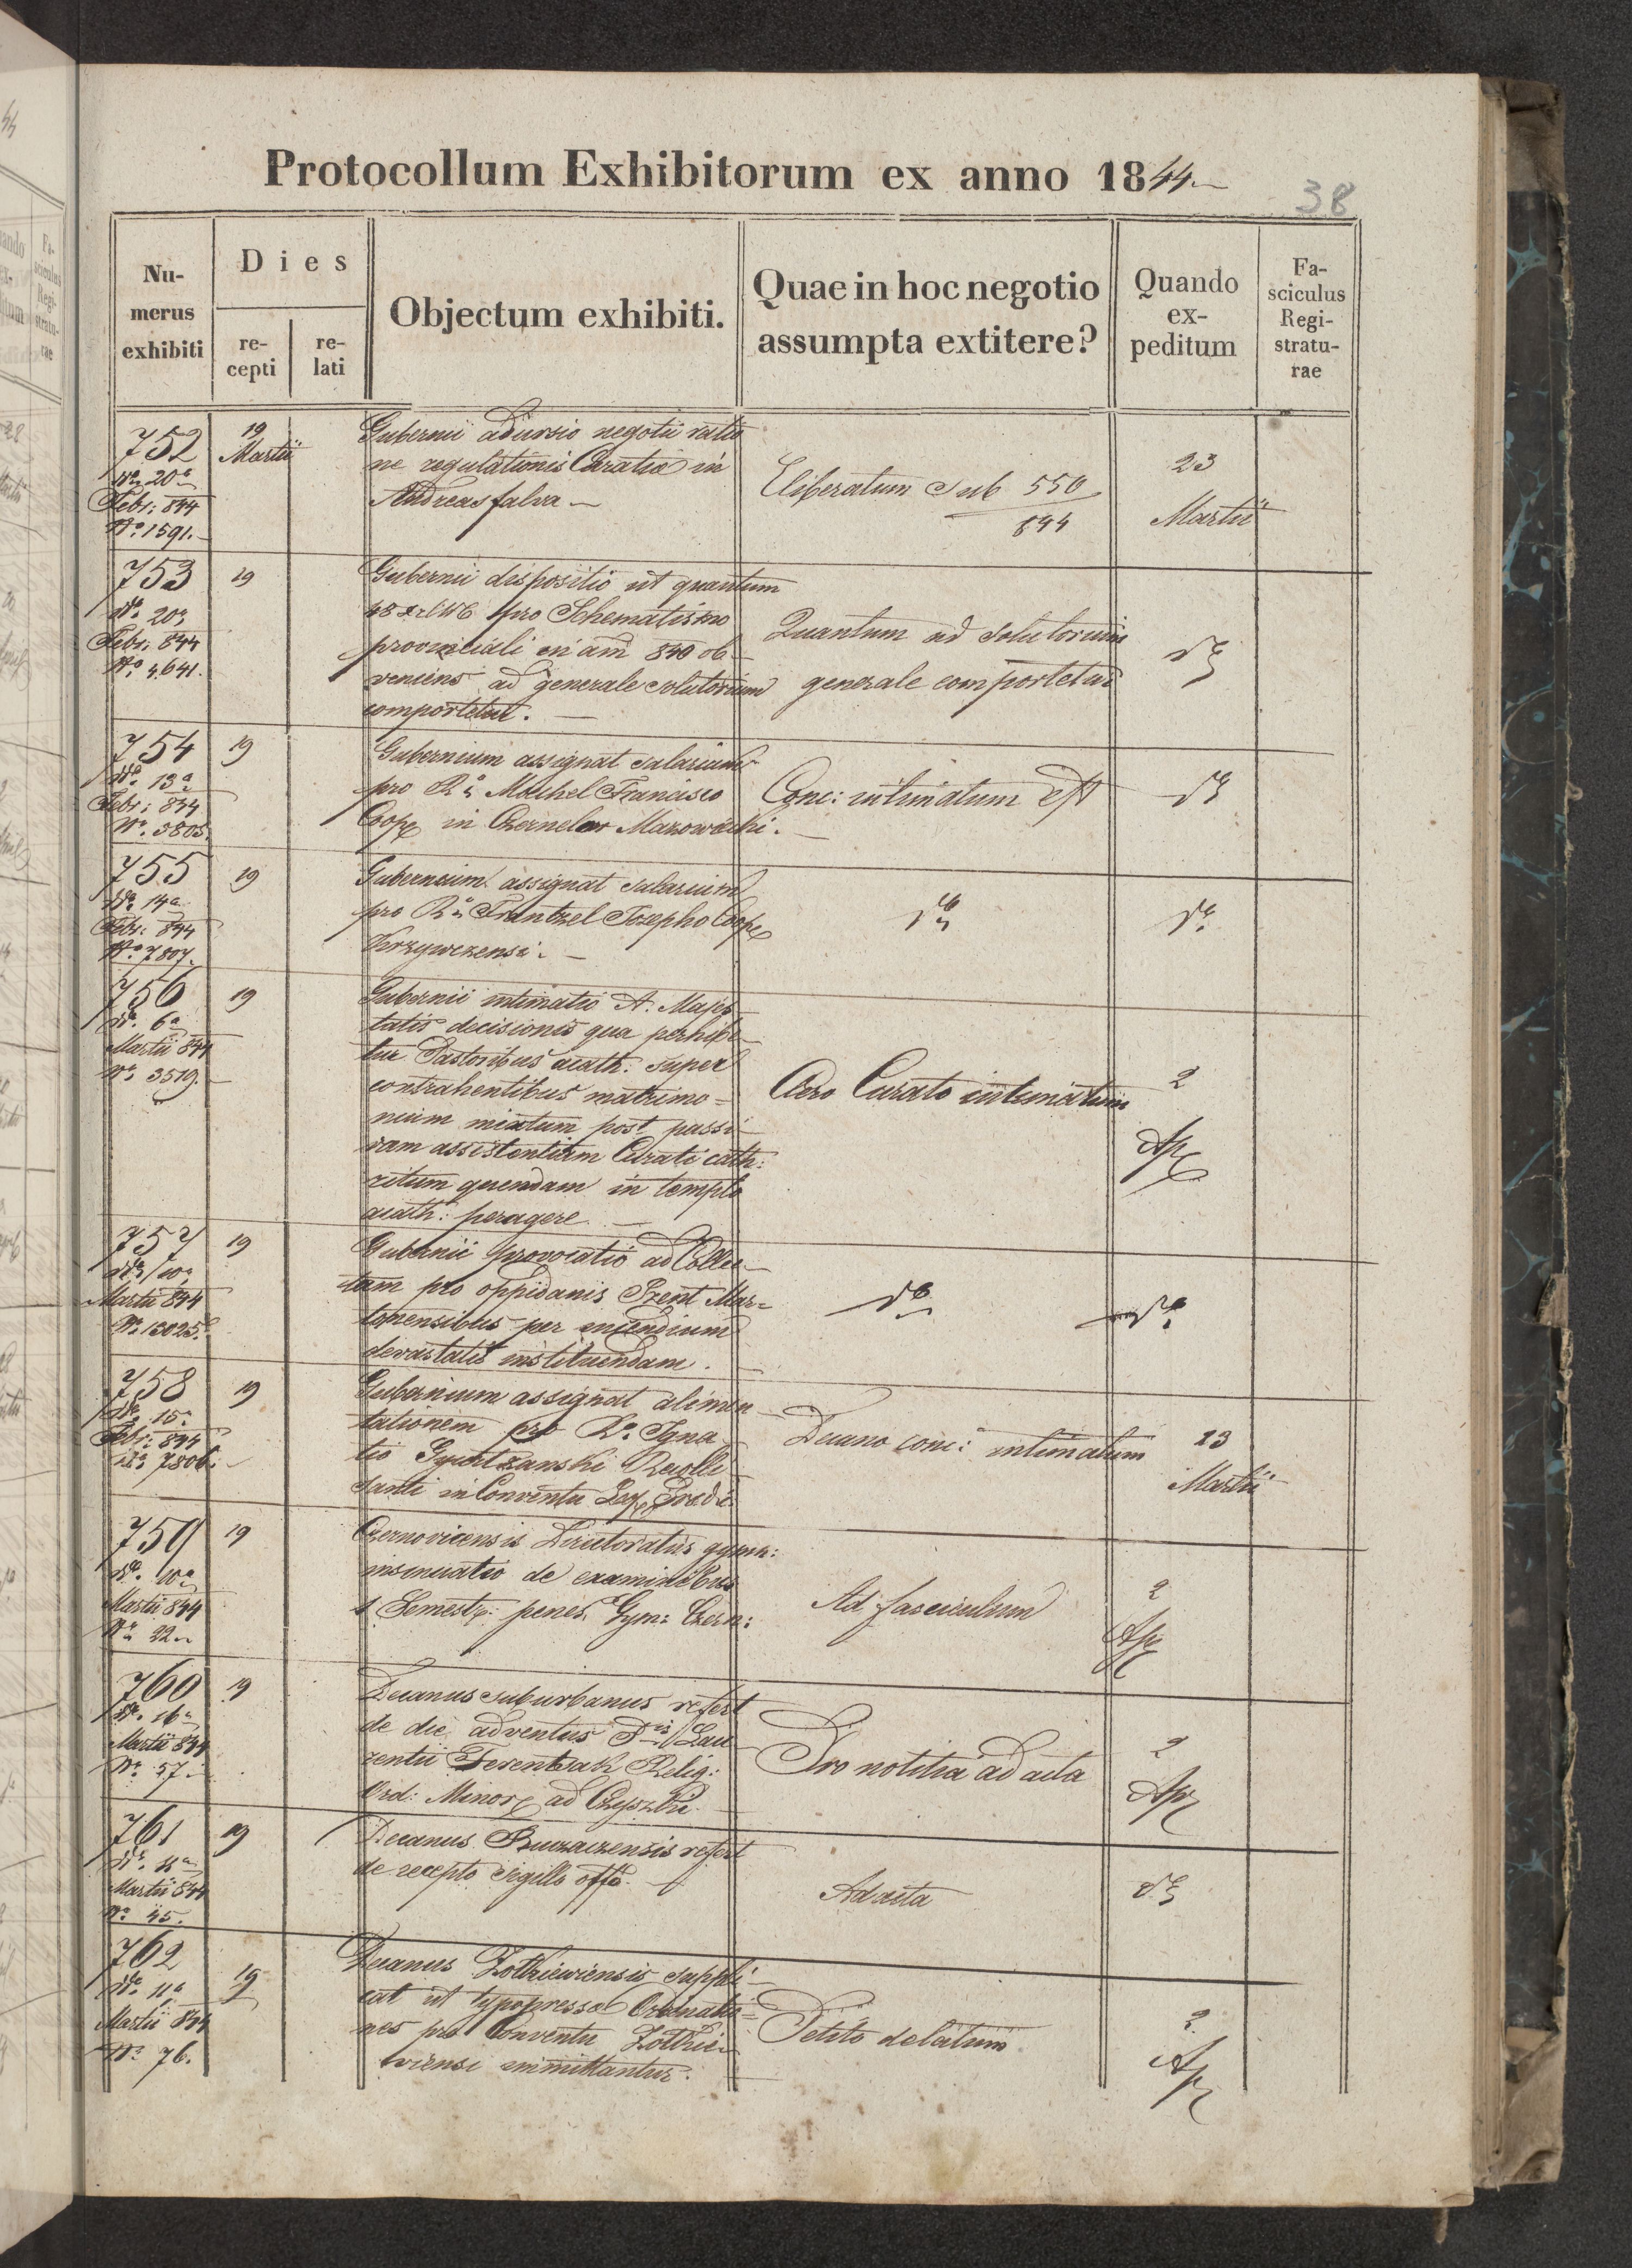 Protocollum Exhibitorum ex anno 1844
38
Nu-
merus
exhibiti
Dies
re-
cepti
re-
lati
Objectum exhibiti.
Quae in hoc negotio
assumpta extitere?
Quando
ex-
peditum
Fa-
sciculus
Regi-
stratu-
rae
752
20
Febr: 844
No. 1591.
19
Martii
Gubernii negotii ratio
ne regulationis Curatiae in
Andreasfalva
Eliberatum sub 550
844
23
Martii
753
20
Febr: 844
No. 4641.
19
Gubernii dispositio ut quantum
48 pro Schematismo
provinciali in 840 ob
veniens ad generale solutorium
comportetur.
Quantum ad solutorium
generale comportetur
754
13a
Febr: 844
No. 5805.
19
Gubernium assignat salarium
pro Mochel Francisco
Coop in Mazowiecki.
Conc: intimatum est
755
14a
Febr: 844
No. 7807.
19
Gubernium assignat salarium
pro Frantzel Josepho Coop
Krzywczensi.
do
756
6a
Martii 844
No. 3519.
19
Gubernii intimatio A. Majes
tatis decisionis qua perhibe
tur Pastoribus acath. super
contrahentibus matrimo=
nium mixtum post passi
vam assistentiam Curati cath:
ritum quendam in templo
acath: peragere
Clero Curato intimatum
2
Apr
757
10
Martii 844
No. 15025.
19
Gubernii provocatio ad Collec
tam pro oppidanis Szent Mar=
tonensibus per incendium
devastatis instituendam.
do
do
758
15
Febr: 844
No. 7806.
19
Gubernium assignat alimen
tationem pro Igna
tio
santi in Conventu
Decano conc: intimatum
23
Martii
759
10a
Martii 844
No. 22
19
Czernovicensis Directoratus gymn:
insinuatio de examinibus
1 Semestr: penes Gym: Czern:
Ad fasciculum
2
Apr
760
16a
Martii 844
No. 57.
19
Decanus suburbanus refert
de die adventus Lau
rentii Relig:
Ord: Minor ad
Pro notitia ad acta
2
Apr
761
11a
Martii 844
No. 45.
19
Decanus Buczaczensis refert
de recepto sigillo offo.
Ad acta
762
11a
Martii 844
No. 76.
19
Decanus Zolkiewiensis suppli
cat ut typopressa Ordinatio=
nes pro Conventu Zolkie
wiensi immittantur.
Petito delatum
2
Apr